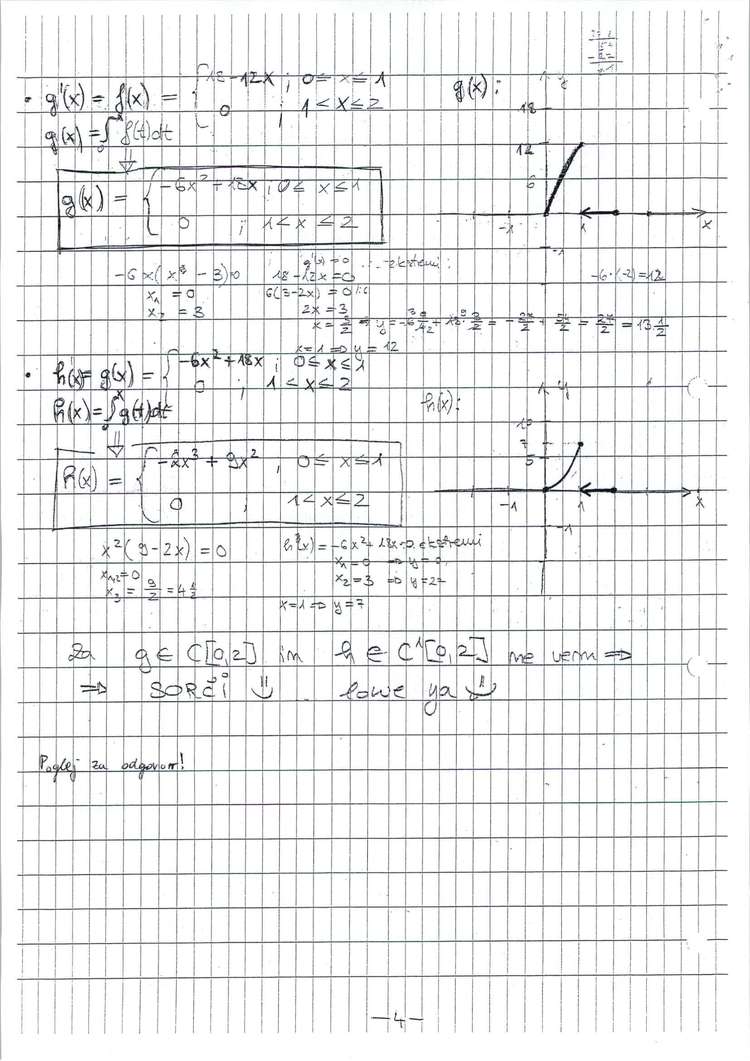 • g'(x) = f(x) = { 18-12x ; 0 ≤ x ≤ 1
0 ; 1 < x ≤ 2
g(x) = ∫₀ˣ f(t)dt
⇓
g(x) = { -6x² + 18x ; 0 ≤ x ≤ 1
0 ; 1 < x ≤ 2
g(x):
y
18
12
6
-1
1
x
-1
-6x(x - 3)=0
x₁ = 0
x₂ = 3
g'(x) = 0 ekstremi:
18-12x = 0
6(3-2x) = 0 /:6
2x = 3
x = 3/2 ⇒ y = -6·9/4 + 18·3/2 = -27/2 + 54/2 = 27/2 = 13 1/2
x=1 ⇒ y = 12
-6·(-2)=12
• h'(x) = g(x) = { -6x² + 18x ; 0 ≤ x ≤ 1
0 ; 1 < x ≤ 2
h(x) = ∫₀ˣ g(t)dt
⇓
h(x) = { -2x³ + 9x² ; 0 ≤ x ≤ 1
0 ; 1 < x ≤ 2
h(x):
y
10
7
5
-1
1
x
-1
x²(9-2x) = 0
x₁,₂ = 0
x₃ = 9/2 = 4 1/2
h'(x) = -6x² + 18x = 0 ekstremi
x₁ = 0 ⇒ y = 0
x₂ = 3 ⇒ y = 27
x=1 ⇒ y = 7
Za g ∈ C[0,2] in h ∈ C¹[0,2] ne vem ⇒
⇒ SORČI :) lowe ya :)
Poglej za odgovor!
-4-